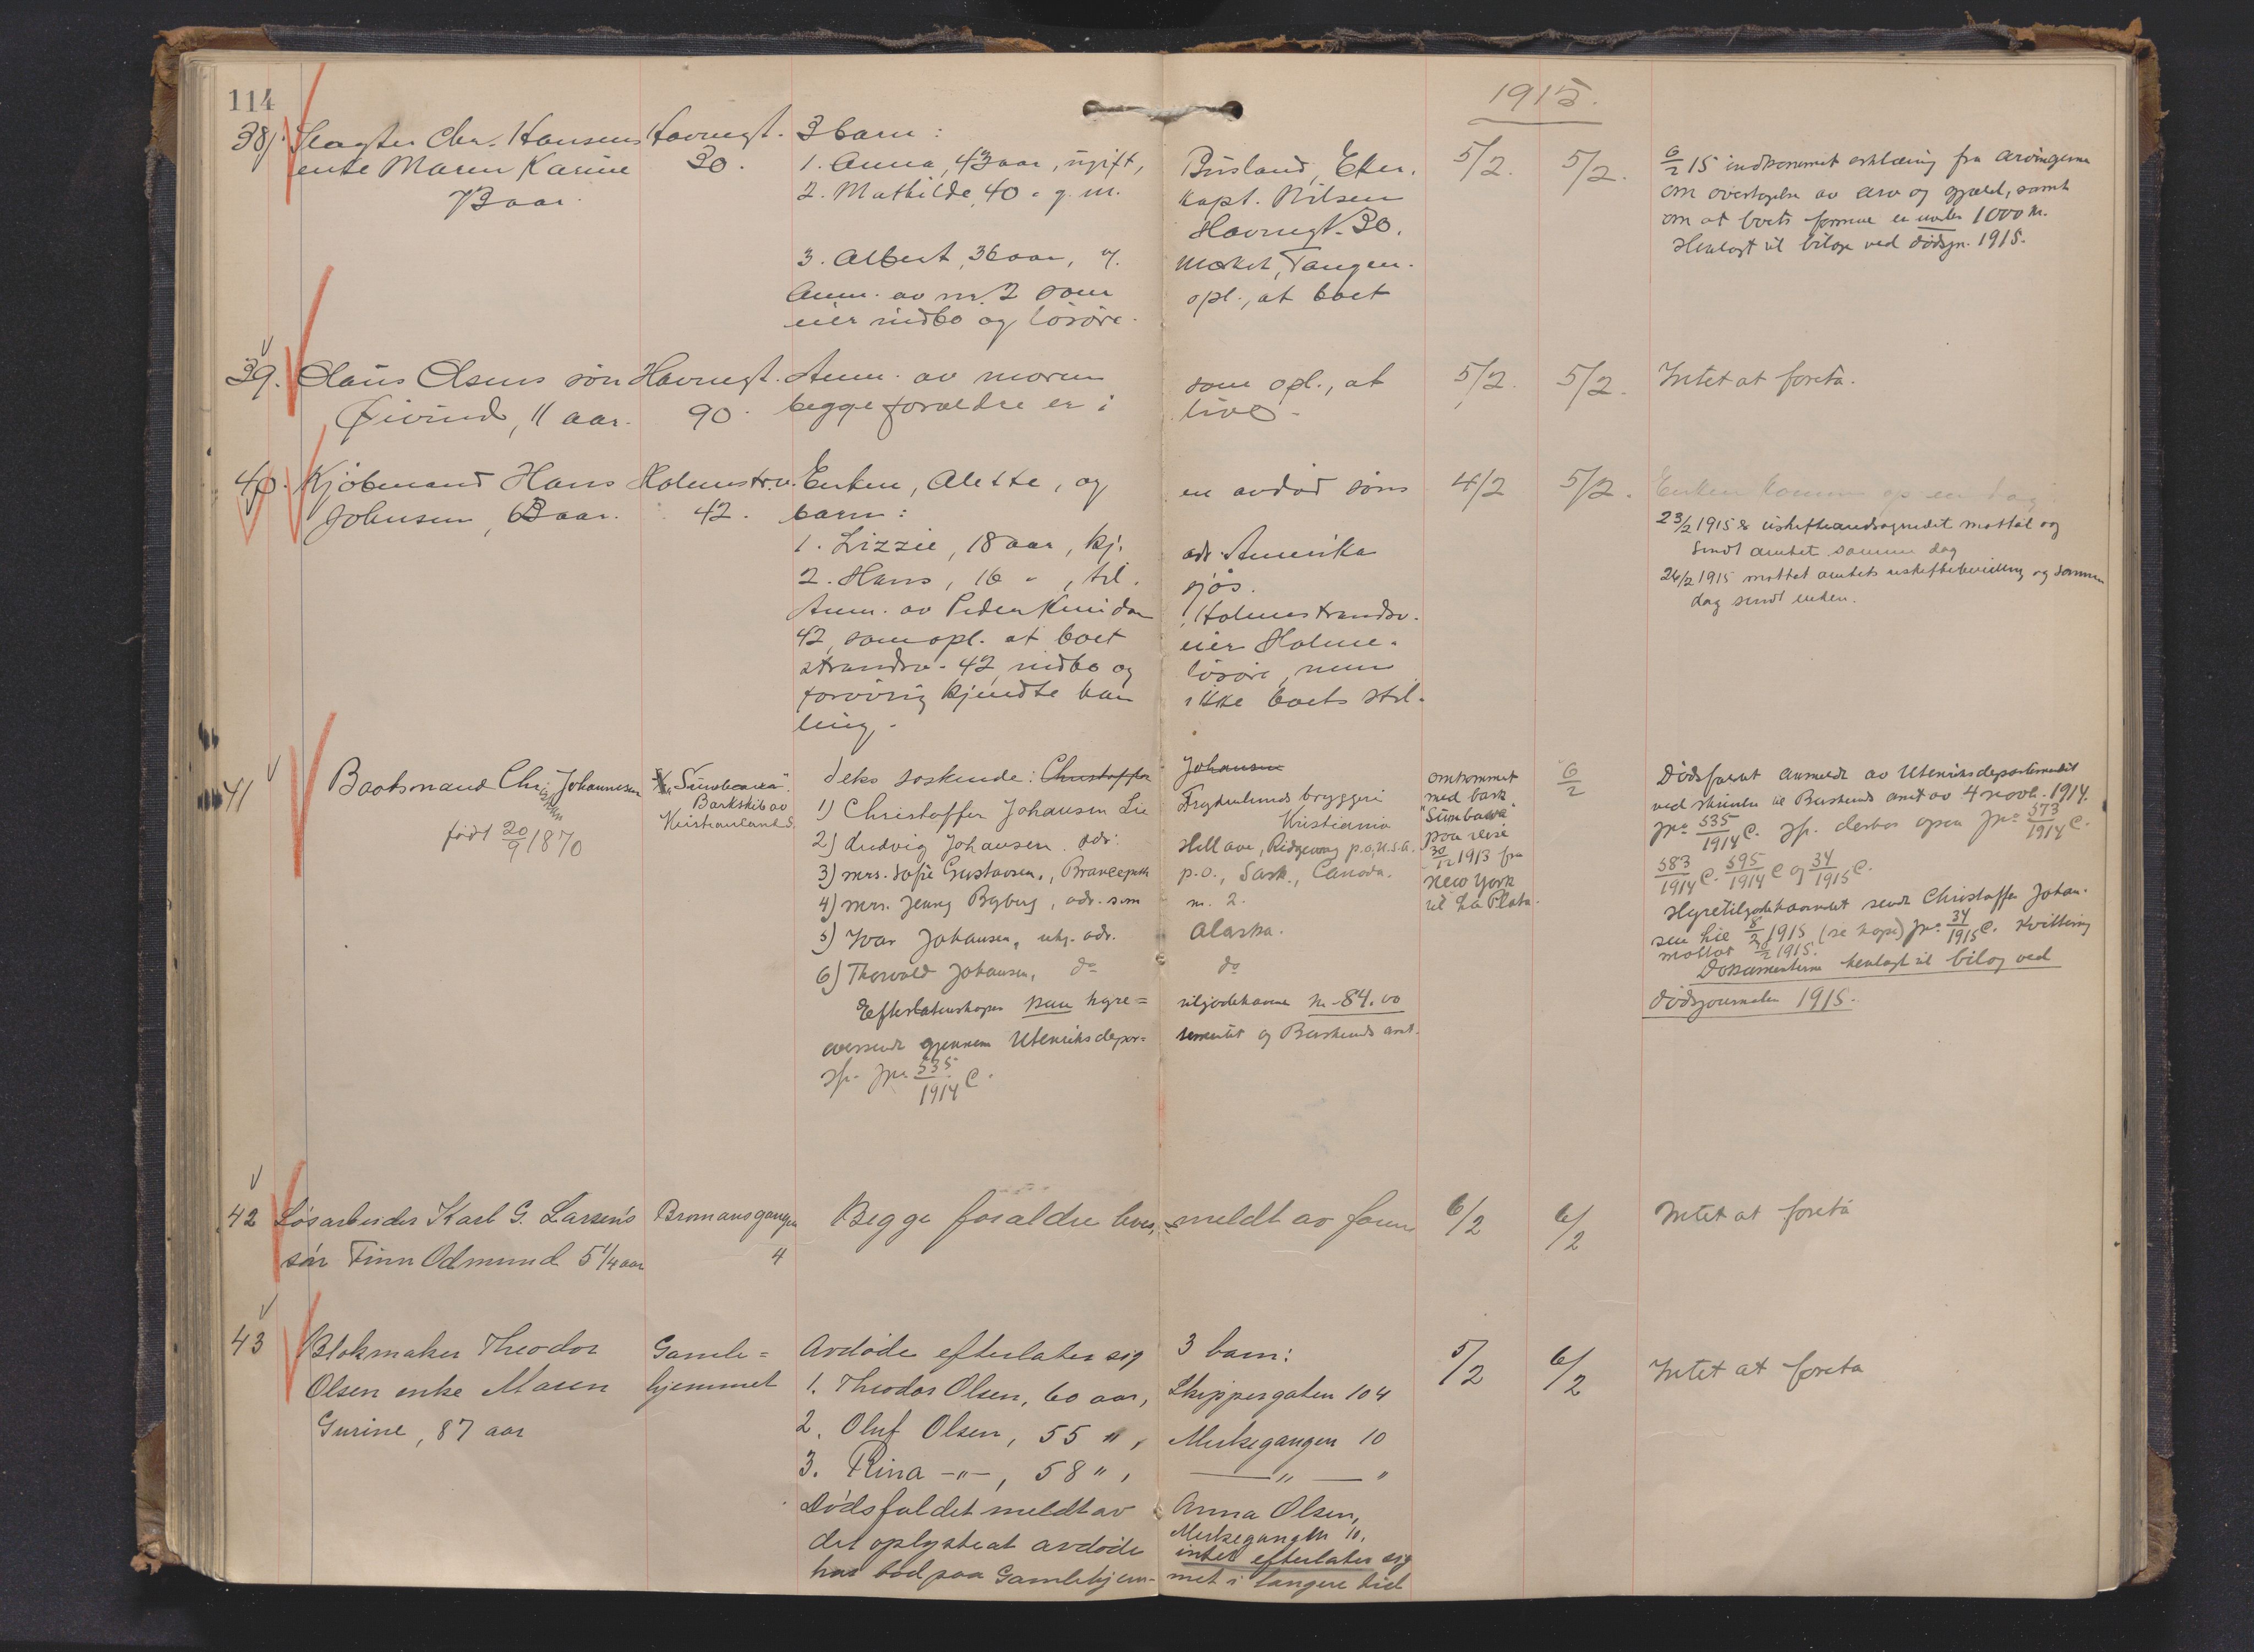 114
1915.
38. Slagter Chr. Hansens Havnegt. 3 barn:
enke Maren Karine 30. 1. Anna, 43 aar, ugift, Busland, Eker. 5/2. 5/2. 6/2 15 indkommet erklæring fra arvingerne
73 aar. 2. Mathilde, 40 " g. m. kapt. Nilsen om overtagelse av arv og gjæld, samt
Havnegt. 30. om at boets formue er under 1000 kr.
3. Albert, 36 aar, g. Tangen. Henlagt til bilage ved dødsjr. 1915.
Anm. av nr. 2 som opl., at boet
eier indbo og løsøre.
39. Olaus Olsens søn Havnegt. Anm. av moren som opl., at 5/2. 5/2. Intet at foreta.
Øivind, 11 aar. 90. begge forældre er i live.
40. Kjøbmand Hans Holmestr.v. Enken, Alette, og en avdød søns 4/2 5/2. Enken kommer op en dag
Johnsen, 63 aar. 42. barn: 23/2 1915 uskifteandragendet mottat og
1. Lizzie, 18 aar, kj. adr. Amerika sendt amtet samme dag
2. Hans, 16 " , til sjøs. 24/2 1915 mottat amtets uskiftebevilling og samme
Anm. av Peder Holmestrandsv. dag sendt enken.
42, som opl. at boet eier Holme-
strandsv. 42, indbo og løsøre, men
forøvrig kjendte han ikke boets stil-
ling.
41 Baatsmand Christian Johannesen "Sumbawa". deks søskende: Christoffer Johansen omkommet 6/2 Dødsfaldet anmeldt av Utenriksdepartementet
Barkskib av 1) Christoffer Johansen Lie Frydenlunds bryggeri med bark ved skrivelse til Buskeruds amt av 4 novbr. 1914.
født 20/9 1870 Kristiansand S. Kristiania "Sumbawa" Jnr. 535/1914 C. Jfr. desuten Jnr. 573/1914 C.
2) Ludvig Johansen. adr: Hill ave, Ridgeway p.o, U.S.A. paa reise 583/1914 C. 595/1914 C og 34/1915 C.
3) Mrs. Sofie Gustavsen., Brancepeth p.o., Sask., Canada. 30/12 1913 fra Hyretilgodehavendet sendt Christoffer Johan-
4) Mrs. Jenny Byberg, adr. som nr. 2. New York sen Lie 8/2 1915 (se kopi) Jnr. 34/1915 C. Kvittering
5) Ivar Johansen, adr. Alaska. til La Plata. mottat 1915.
6) Thorvald Johansen, do do Dokumenterne henlagt til bilag ved
Efterlatenskapen kun hyre= tilgodehavende kr. 84.00 dødsjournalen 1915.
oversendt gjennem Utenriksdepar= tementet og Buskeruds amt.
Jfr. Jnr. 535/1914 C.
42 Løsarbeider Karl G. Larsen's Bromansgangen Begge forældre lever, meldt av faren 6/2 6/2 Intet at foreta
søn Finn Odmund 5 1/4 aar 4
43 Blokmaker Theodor Gamle= Avdøde efterlater sig 3 barn: 5/2 6/2 Intet at foreta
Olsen enke Maren hjemmet 1. Theodor Olsen, 60 aar, Skippergaten 104
Gurine, 87 aar 2. Oluf Olsen, 55 " , Muksegangen 10
3. Rina -"-, 58 " , — " — "
Dødsfaldet meldt av Anna Olsen,
Muksegangen 10,
det oplyste at avdøde intet efterlater sig
har bod paa Gamlehjem- met i længere tid